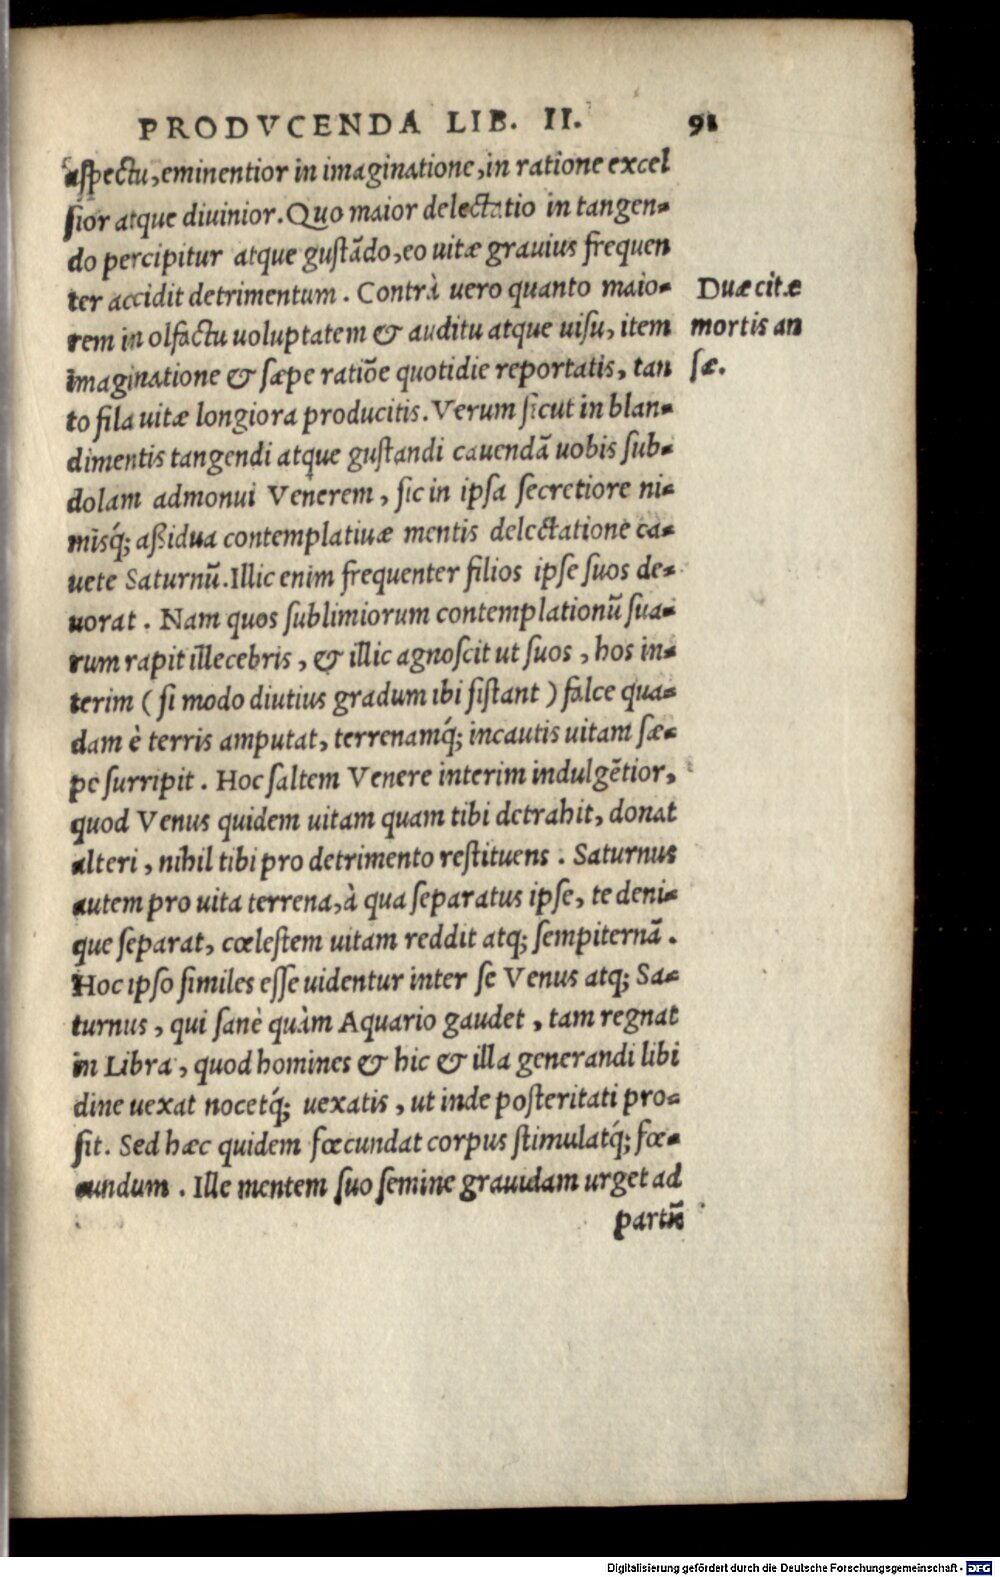 PRODVCENDA LIB. II. 91
aspectu, eminentior in imaginatione, in ratione excel
sior atque diuinior. Quo maior delectatio in tangen-
do percipitur atque gustãdo, eo uitæ grauius frequen
ter accidit detrimentum. Contrà uero quanto maio-
rem in olfactu uoluptatem & auditu atque uisu, item
imaginatione & sæpe ratiõe quotidie reportatis, tan
to fila uitæ longiora producitis. Verum sicut in blan-
dimentis tangendi atque gustandi cauendã uobis sub-
dolam admonui Venerem, sic in ipsa secretiore ni-
misq́; aßidua contemplatiuæ mentis delectatione ca-
uete Saturnũ. Illic enim frequenter filios ipse suos de-
uorat. Nam quos sublimiorum contemplationũ sua-
rum rapit illecebris, & illic agnoscit ut suos, hos in-
terim (si modo diutius gradum ibi sistant) falce qua-
dam è terris amputat, terrenamq́; incautis uitam sæ-
pe surripit. Hoc saltem Venere interim indulgẽtior,
quod Venus quidem uitam quam tibi detrahit, donat
alteri, nihil tibi pro detrimento restituens. Saturnus
autem pro uita terrena, à qua separatus ipse, te deni-
que separat, cœlestem uitam reddit atq; sempiternã.
Hoc ipso similes esse uidentur inter se Venus atq; Sa-
turnus, qui sanè quàm Aquario gaudet, tam regnat
in Libra, quod homines & hic & illa generandi libi
dine uexat nocetq́; uexatis, ut inde posteritati pro-
sit. Sed hæc quidem fœcundat corpus stimulatq́; fœ-
cundum. Ille mentem suo semine grauidam urget ad
partũ
Duæ citæ
mortis an
sæ.
Digitalisierung gefördert durch die Deutsche Forschungsgemeinschaft - DFG